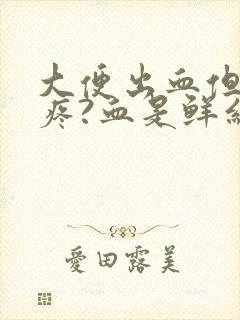 大便出血但
疼?血是鲜
愛田露美